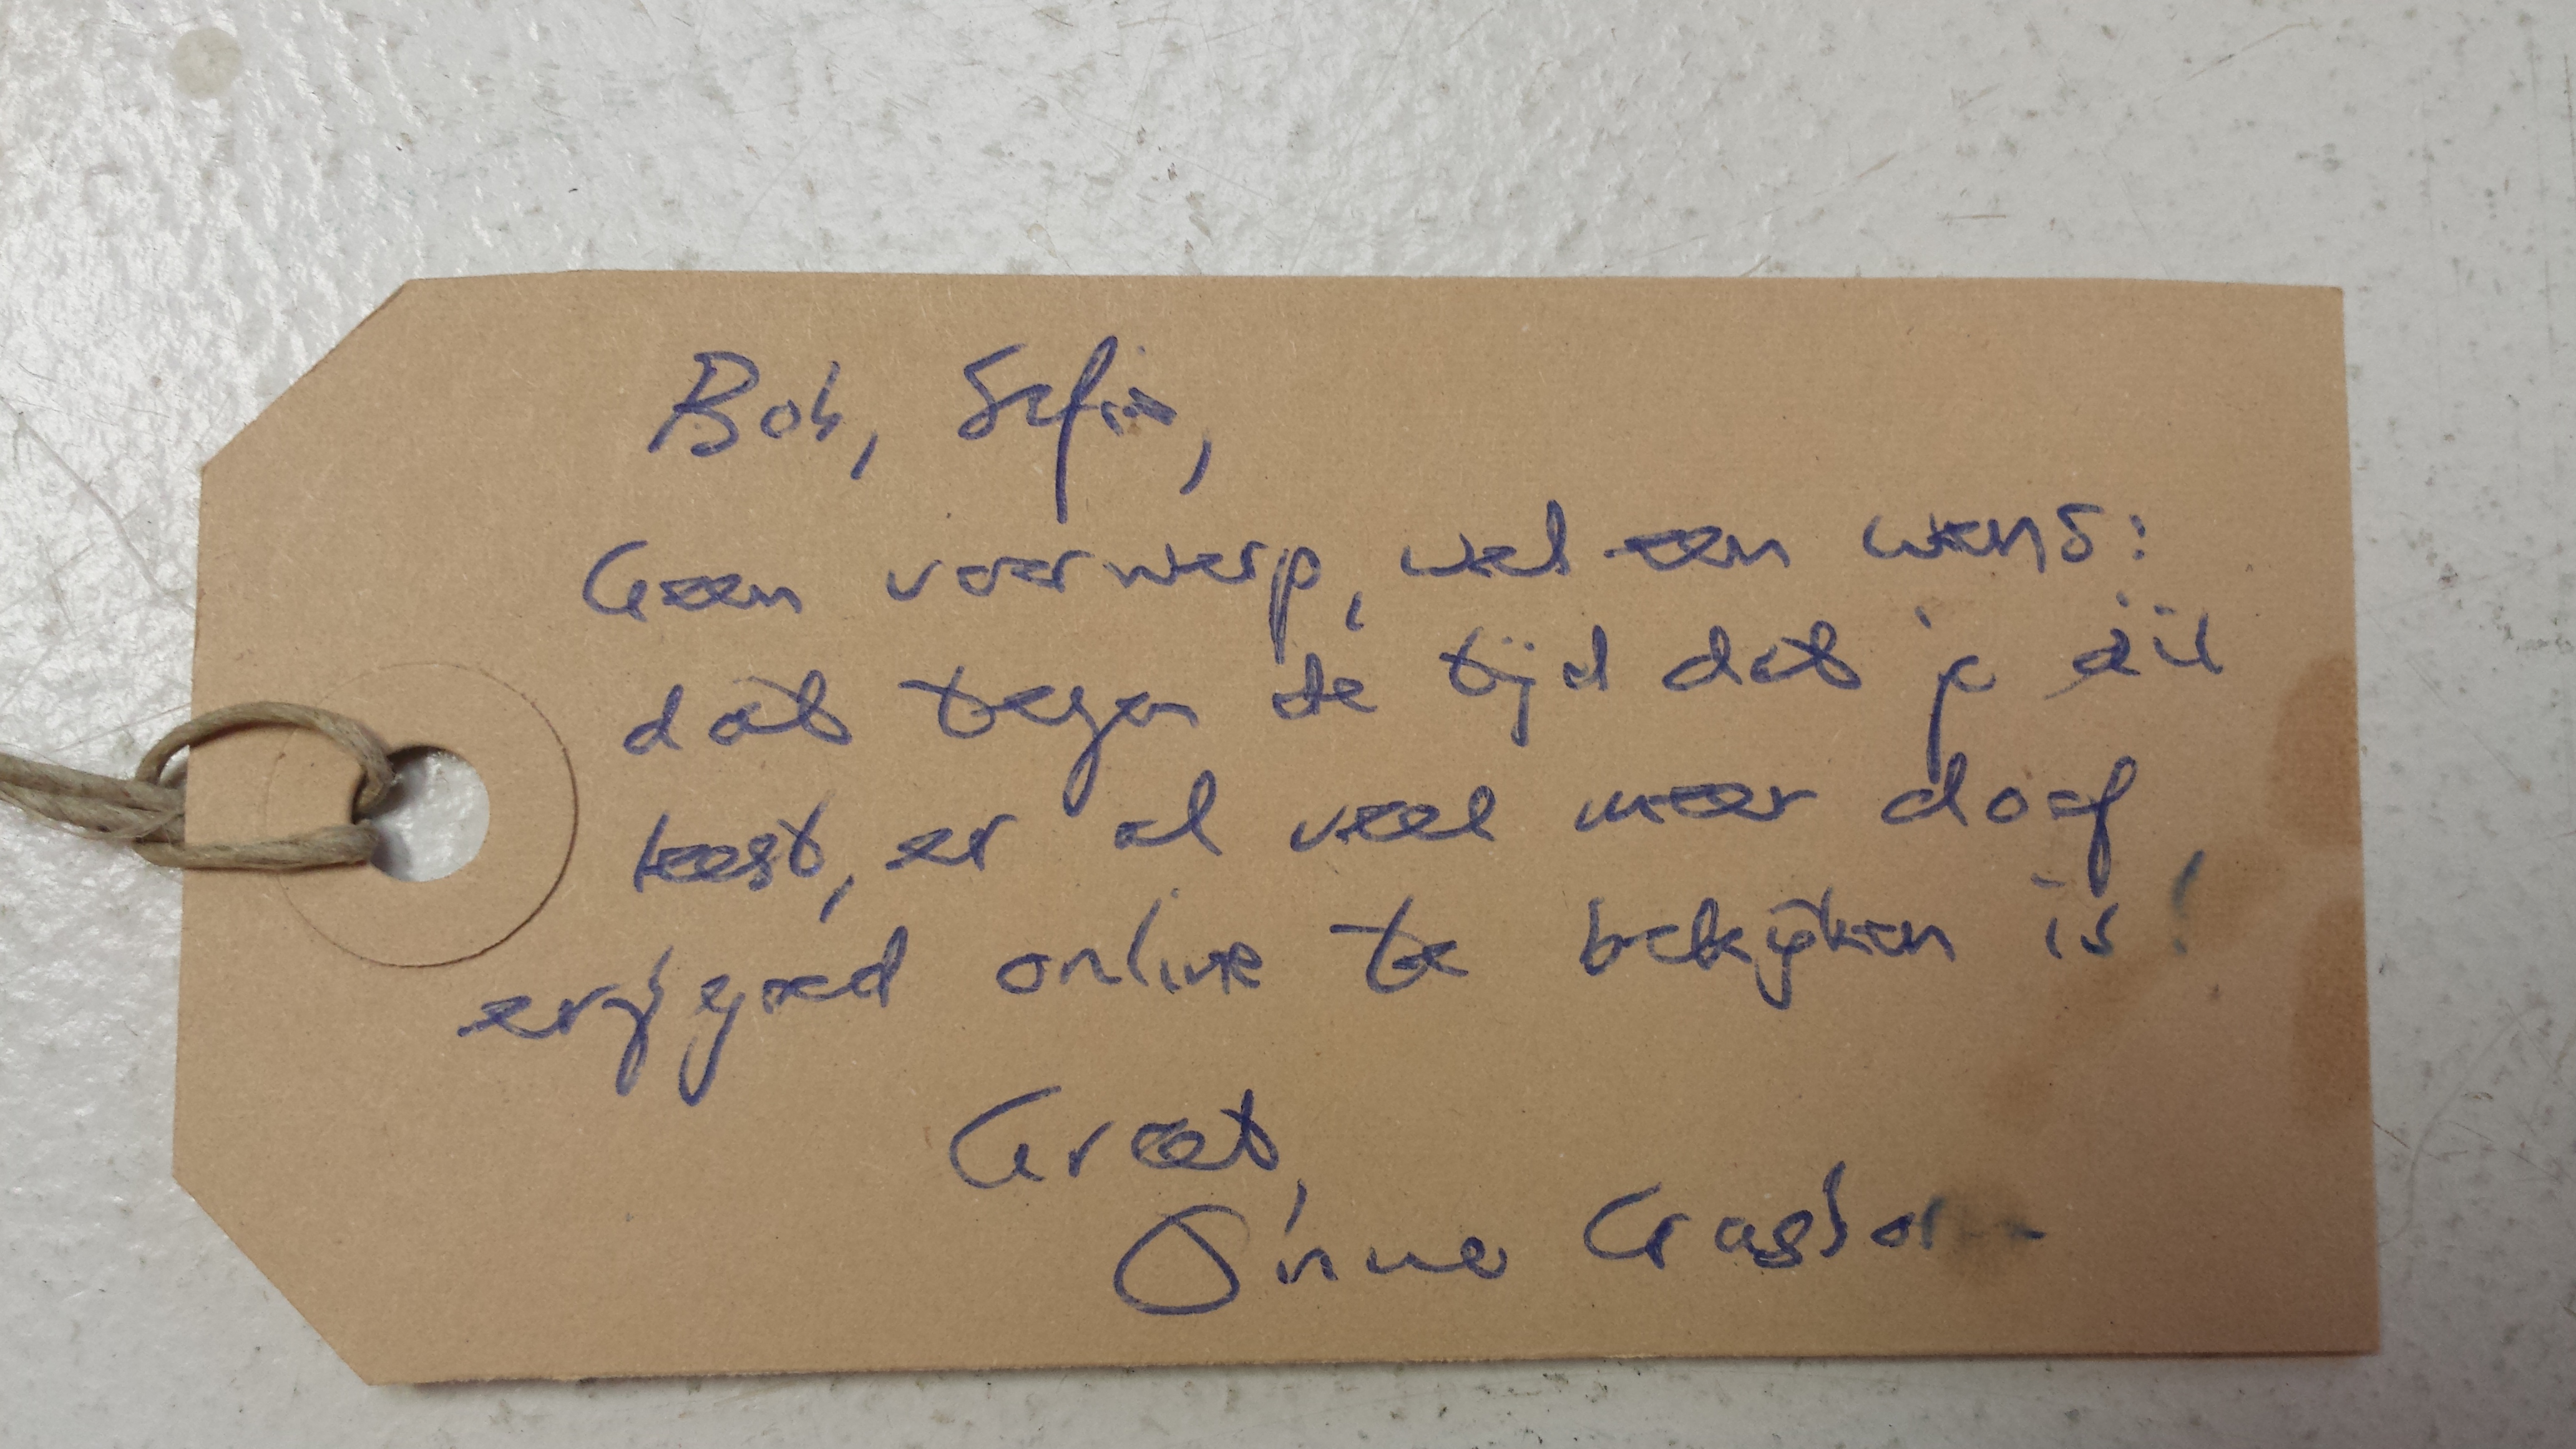 Bob, Sefin,
Geen voorwerp, wel een wens:
dat tegen de tijd dat je dit
leest, er al veel meer doof
erfgoed online te bekijken is!
Groet,